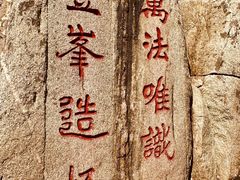 萬法唯識
峯造